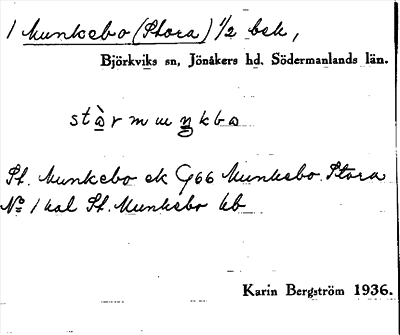 1 Munkebo (Stora) 1/2 bsk,
Björkviks sn, Jönåkers hd. Södermanlands län.
stàrmuŋkbo
St. Munkebo ek G66 Munkebo Stora
No 1 kal St. Munkebo kb
Karin Bergström 1936.